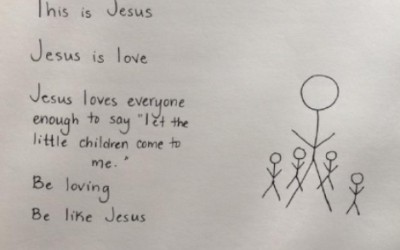 This is Jesus
Jesus is love
Jesus loves everyone
enough to say "let the
little children come to
me."
Be loving
Be like Jesus